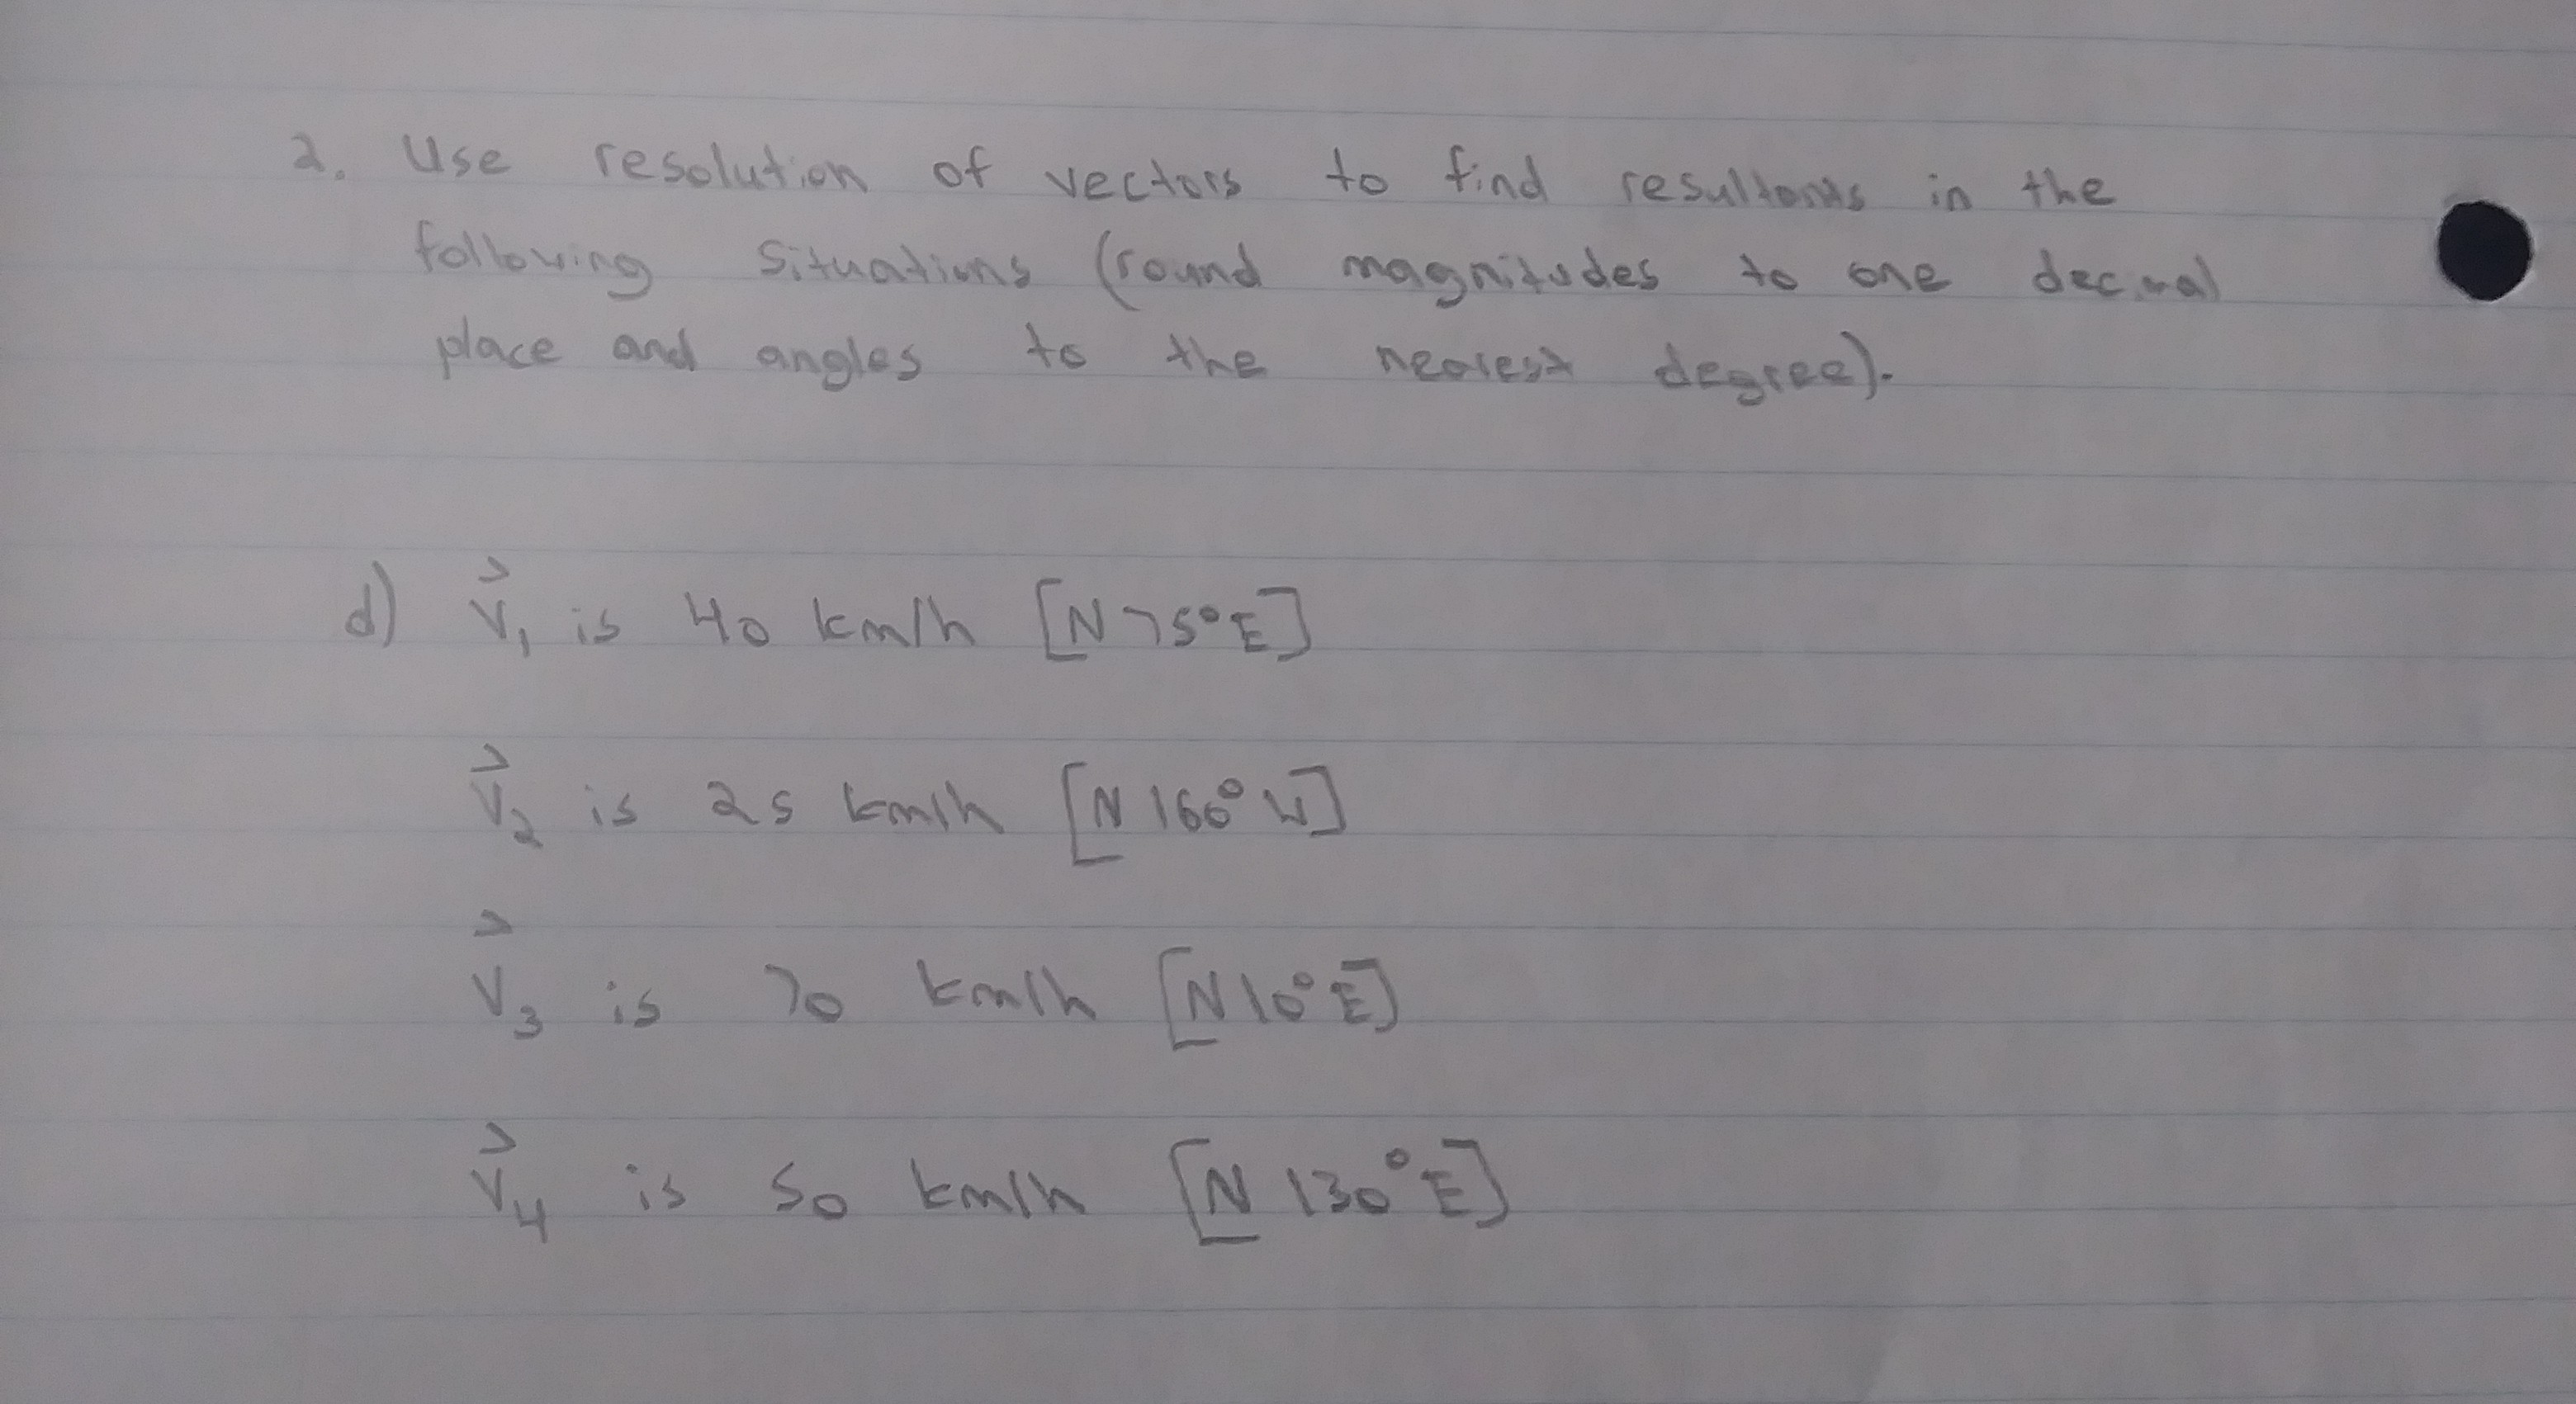 2. Use resolution of vectors to find resultants in the
following situations (round magnitudes to one decimal
place and angles to the nearest degree).
d) V⃗₁ is 40 km/h [N75°E]
V⃗₂ is 25 km/h [N 160° W]
V⃗₃ is 70 km/h [N10°E]
V⃗₄ is 50 km/h [N 130° E]